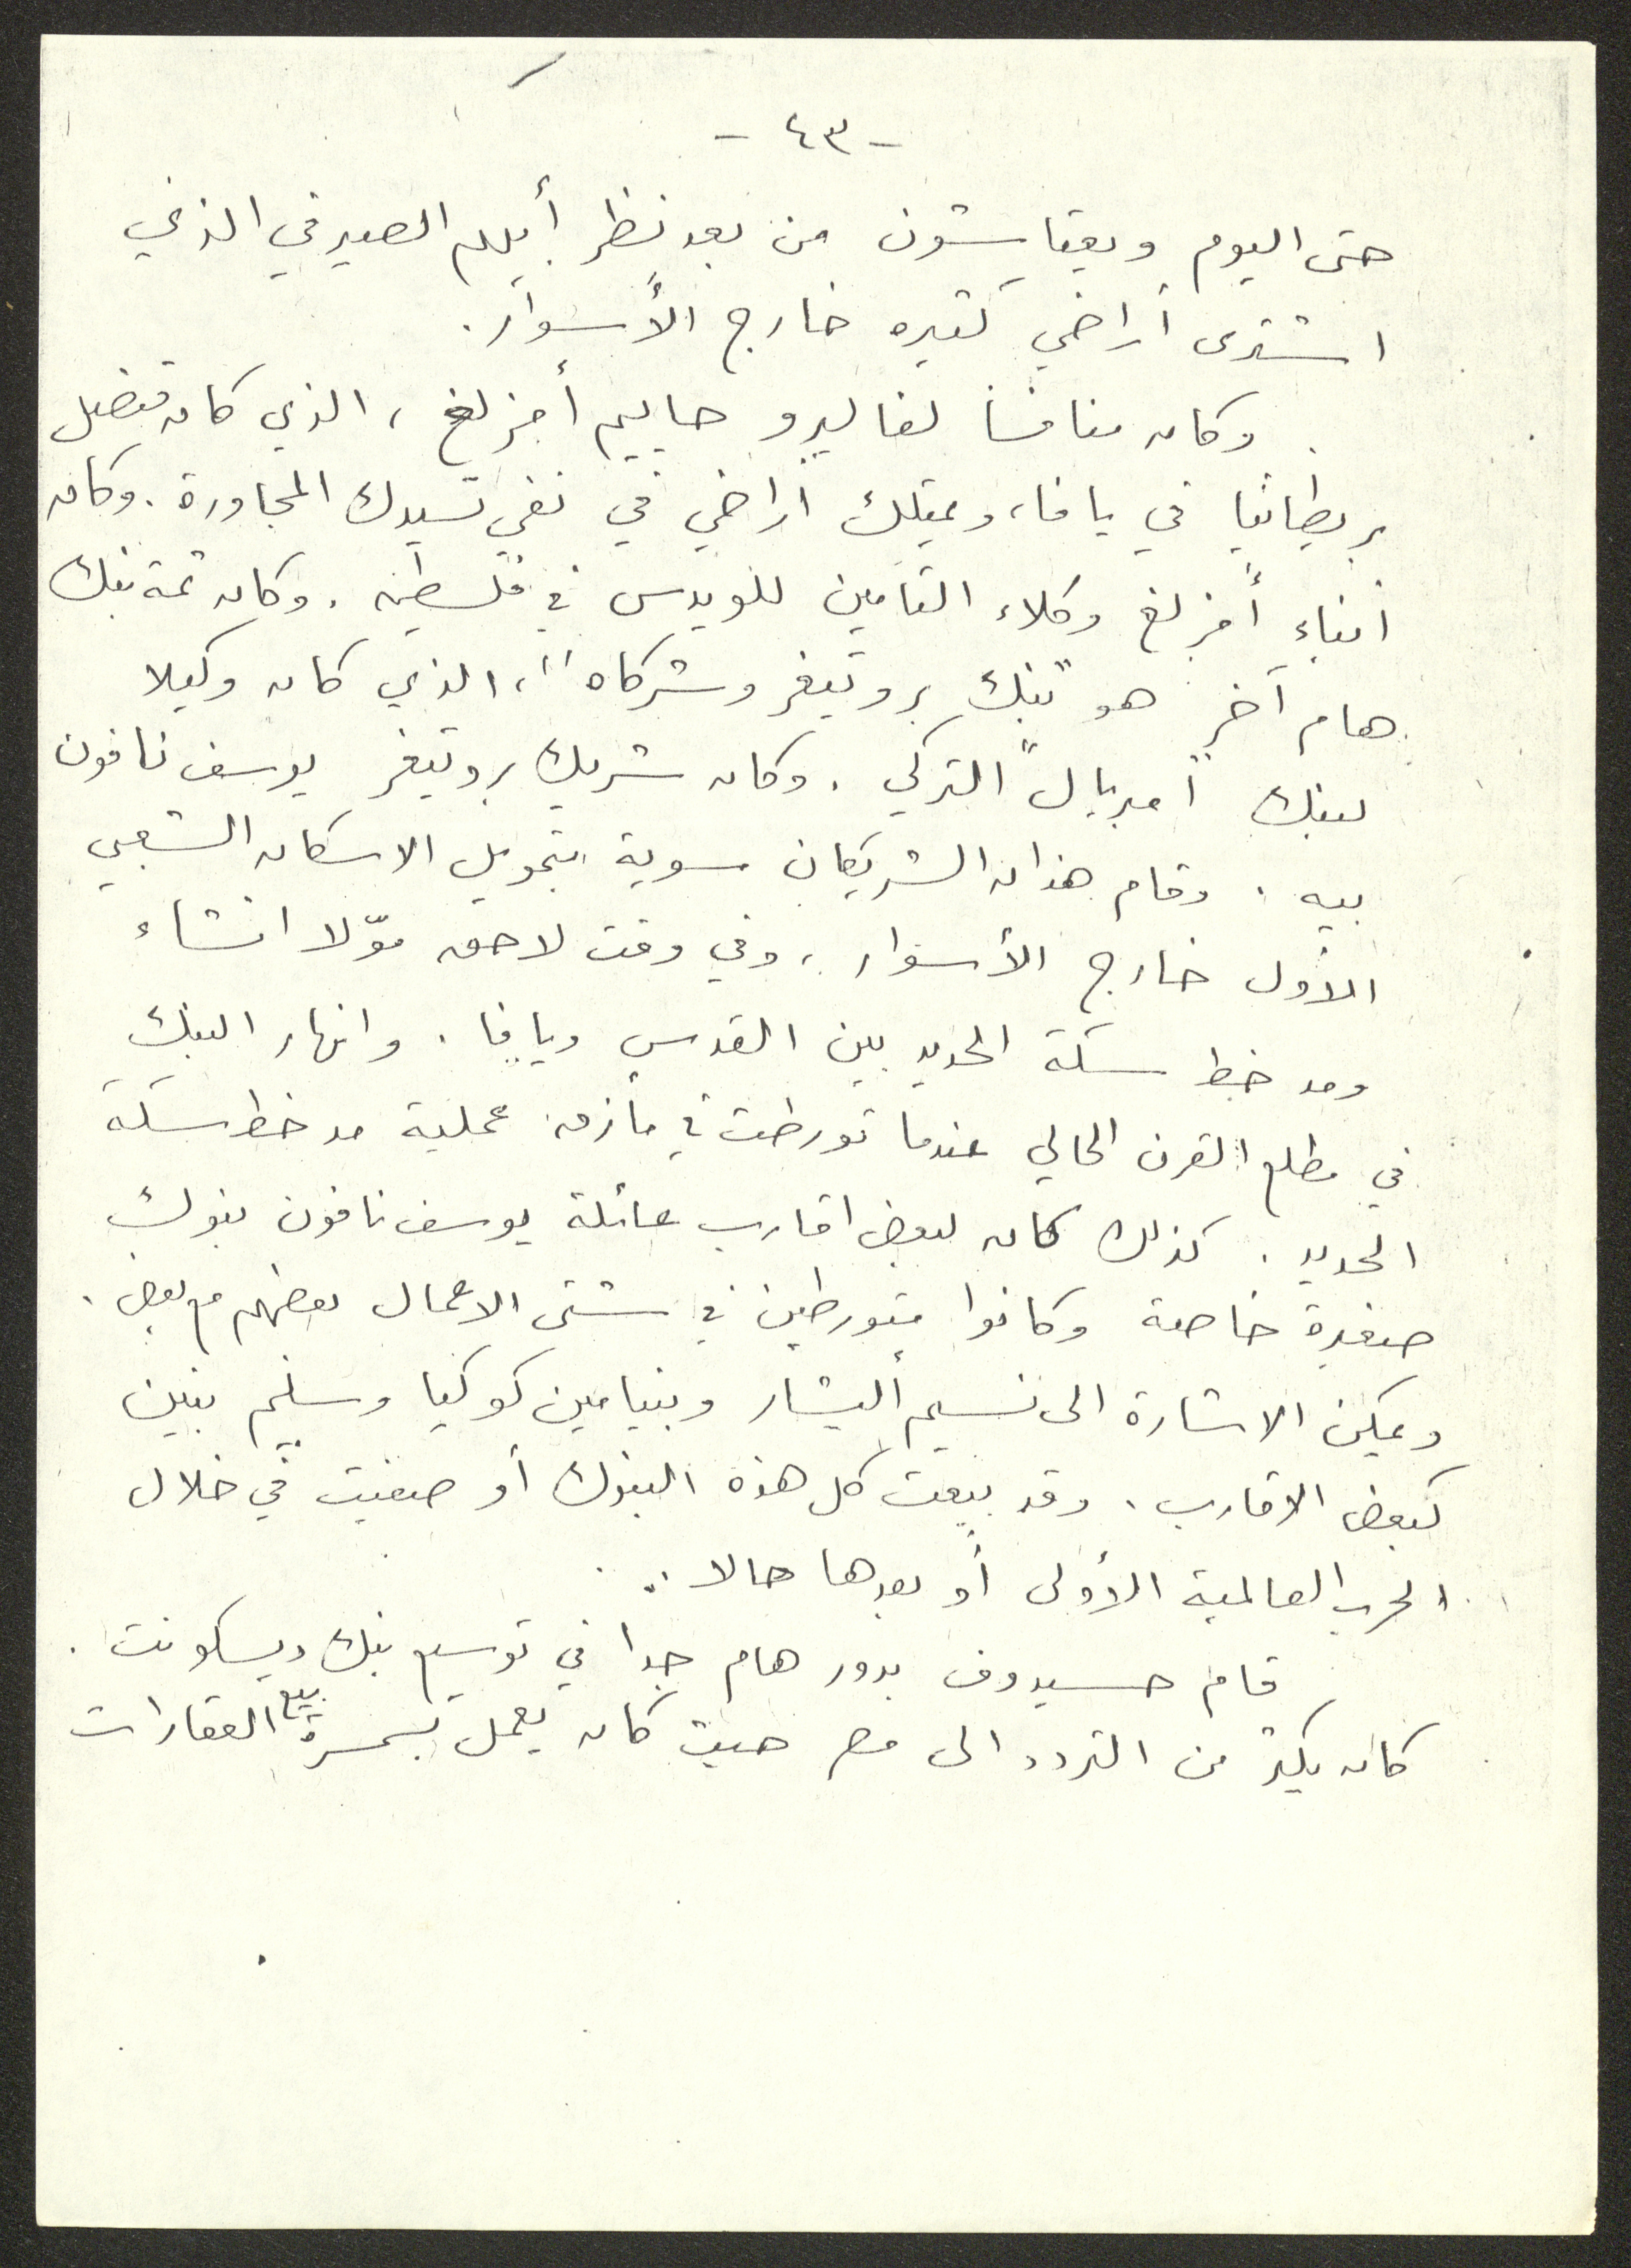 - ٤٣ -
حتى اليوم ويعتاشون من بعد نظر أبيهم الصيرفي الذي
اشترى أراضي كثيره خارج الأسوار.
وكان منافسا لفاليرو حاييم أمزلغ، الذي كان قنصل
بريطانيا في يافا، ويمتلك اراضي في نفي تسيدك المجاورة. وكان
ابناء أمزلغ وكلاء التامين للويدس في فلسطين. وكان ثمة بنك
هام آخر هو "بنك بروتيغر وشركاه"، الذي كان وكيلا
لبنك "امبريال" التركي. وكان شريك بروتيغر يوسف نافون
بيه. وقام هذان الشريكان سوية بتمويل الاسكان الشعبي
الأول خارج الأسوار، وفي وقت لاحق موّلا انشاء
ومد خط سكة الحديد بين القدس ويافا. وانهار البنك
في مطلع القرن الحالي عندما تورطت في مأزق عملية مد خط سكة
الحديد. كذلك كان لبعض اقارب عائلة يوسف نافون بنوك
صغيرة خاصة وكانوا متورطين في شتى الاعمال بعضهم مع بعض.
ويمكن الاشارة الى نسيم أليشار وبنيامين كوكيا وسليم بنين
كبعض الاقارب. وقد بيعت كل هذه البنوك أو صفيت في خلال
الحرب العالمية الأولى أو بعدها حالا..
قام حسيدوف بدور هام جدا في توسيع بنك ديسكونت.
كان يكثر من التردد الى مصر حيث كان يعمل بسمسرة بيع العقارات